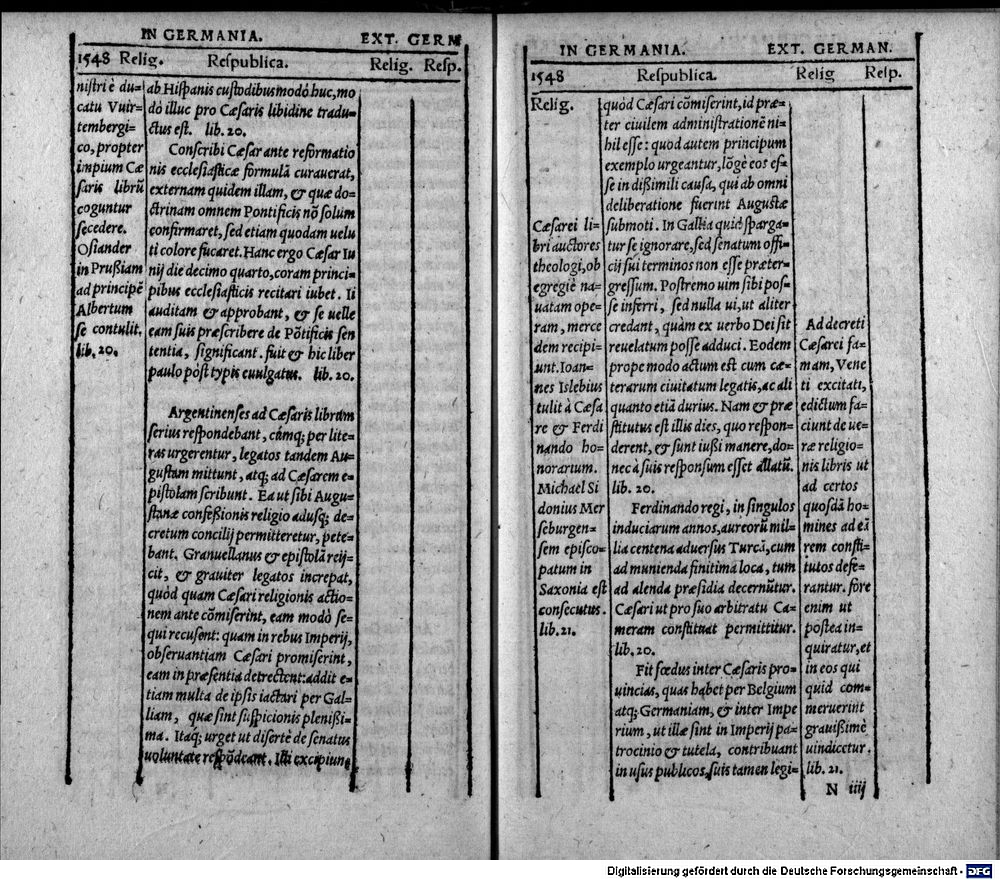 IN GERMANIA. EXT. GERM
1548 Relig. Respublica. Relig. Resp.
nistri è du-
catu Vuir-
tembergi-
co, propter
impium Cæ
saris librũ
coguntur
secedere.
Osiander
in Prußiam
ad principē
Albertum
se contulit.
lib. 20.
ab Hispanis custodibus modò huc, mo
dò illuc pro Cæsaris libidine tradu-
ctus est. lib. 20.
Conscribi Cæsar ante reformatio
nis ecclesiasticæ formulã curauerat,
externam quidem illam, & quæ do-
ctrinam omnem Pontificis nõ solum
confirmaret, sed etiam quodam uelu
ti colore fucaret. Hanc ergo Cæsar Iu
nij die decimo quarto, coram princi-
pibus ecclesiasticis recitari iubet. Ii
auditam & approbant, & se uelle
eam suis præscribere de Põtificis sen
tentia, significant. fuit & hic liber
paulo pòst typis euulgatus. lib. 20.
Argentinenses ad Cæsaris librum
serius respondebant, cúmq; per lite-
ras urgerentur, legatos tandem Au-
gustam mittunt, atq; ad Cæsarem e-
pistolam scribunt. Ea ut sibi Augu-
stanæ confeßionis religio adusq; de-
cretum concilij permitteretur, pete-
bant. Granuellanus & epistolã reij-
cit, & grauiter legatos increpat,
quòd quam Cæsari religionis actio-
nem ante cõmiserint, eam modò se-
qui recusent: quam in rebus Imperij,
obseruantiam Cæsari promiserint,
eam in præsentia detrectent: addit e-
tiam multa de ipsis iactari per Gal-
liam, quæ sint suspicionis plenißi-
ma. Itaq; urget ut disertè de senatus
uoluntate respõdeant. Illi excipiunt,
IN GERMANIA. EXT. GERMAN.
1548 Respublica. Relig Resp.
Relig.
Cæsarei li-
bri auctores
theologi, ob
egregiè na-
uatam ope-
ram, merce
dem recipi-
unt. Ioan-
nes Islebius
tulit à Cæsa
re & Ferdi
nando ho-
norarium.
Michaël Si
donius Mer
seburgen-
sem episco-
patum in
Saxonia est
consecutus.
lib. 21.
quòd Cæsari cõmiserint, id præ-
ter ciuilem administrationē ni-
hil esse: quòd autem principum
exemplo urgeantur, lõgè eos es-
se in dißimili causa, qui ab omni
deliberatione fuerint Augustæ
submoti. In Gallia quid sparga-
tur se ignorare, sed senatum offi-
cij sui terminos non esse præter-
gressum. Postremo uim sibi pos-
se inferri, sed nulla ui, ut aliter
credant, quàm ex uerbo Dei sit
reuelatum posse adduci. Eodem
prope modo actum est cum cæ-
terarum ciuitatum legatis, ac ali
quanto etiã durius. Nam & præ
stitutus est illis dies, quo respon-
derent, & sunt iußi manere, do-
nec à suis responsum esset allatũ.
lib. 20.
Ferdinando regi, in singulos
induciarum annos, aureorũ mil-
lia centena aduersus Turcã, cum
ad munienda finitima loca, tum
ad alenda præsidia decernũtur.
Cæsari ut pro suo arbitratu Ca-
meram constituat permittitur.
lib. 20.
Fit fœdus inter Cæsaris pro-
uincias, quas habet per Belgium
atq; Germaniam, & inter Impe
rium, ut illæ sint in Imperij pa-
trocinio & tutela, contribuant
in usus publicos, suis tamen legi-
Ad decreti
Cæsarei fa-
mam, Vene
ti excitati,
edictum fa-
ciunt de ue-
ræ religio-
nis libris ut
ad certos
quosdã ho-
mines ad eã
rem consti-
tutos defe-
rantur. fore
enim ut
postea in-
quiratur, et
in eos qui
quid com-
meruerint
grauißimè
uindicetur.
lib. 21.
N iiij
Digitalisierung gefördert durch die Deutsche Forschungsgemeinschaft - DFG